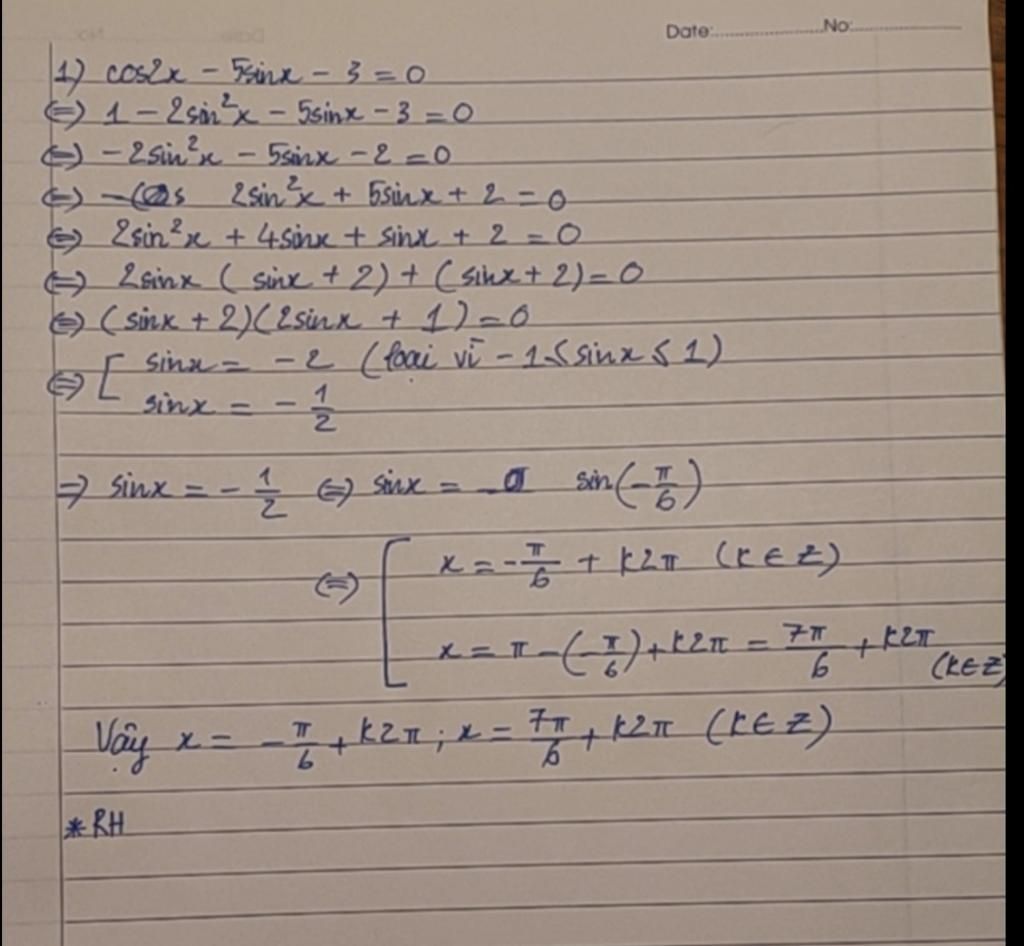 Date:................No:................
1) cos2x - 5sinx - 3 = 0
⇔ 1 - 2sin²x - 5sinx - 3 = 0
⇔ - 2sin²x - 5sinx - 2 = 0
⇔ 2sin²x + 5sinx + 2 = 0
⇔ 2sin²x + 4sinx + sinx + 2 = 0
⇔ 2sinx ( sinx + 2) + (sinx + 2) = 0
⇔ (sinx + 2)(2sinx + 1) = 0
⇔ [ sinx = - 2 (loại vì - 1 ≤ sinx ≤ 1)
sinx = - 1/2
⇒ sinx = - 1/2 ⇔ sinx = sin(-π/6)
⇔ [ x = -π/6 + k2π (k ∈ Z)
x = π - (-π/6) + k2π = 7π/6 + k2π (k ∈ Z)
Vậy x = -π/6 + k2π ; x = 7π/6 + k2π (k ∈ Z)
* RH